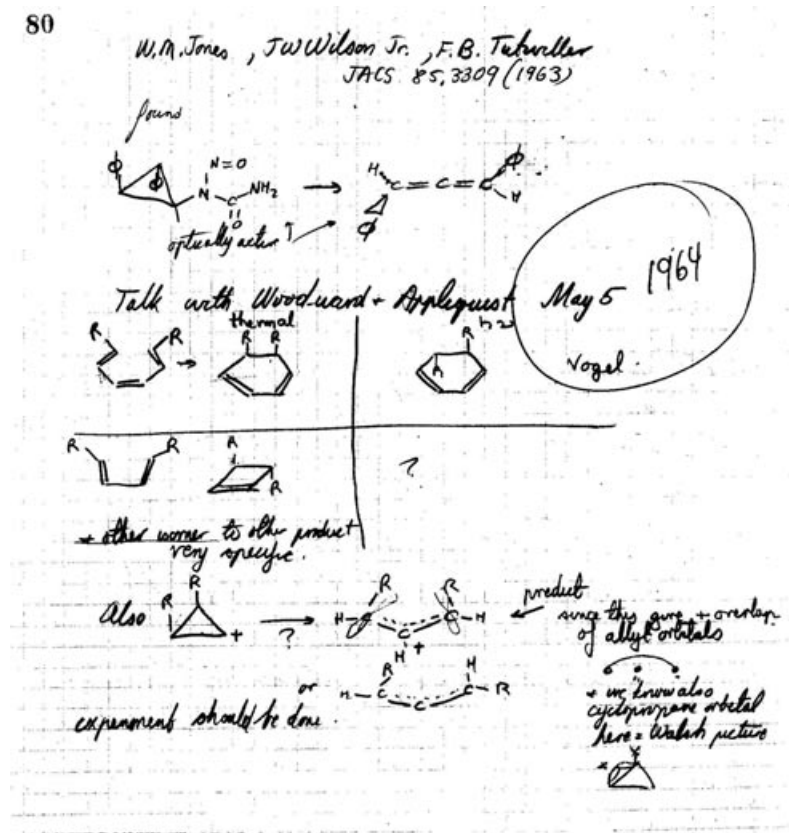 80
W.M. Jones, JW Wilson Jr., F.B. Tutwiller
JACS 85, 3309 (1963)
found
N=O
φ φ N C NH₂ → H C=C=C φ
O φ H
optically active
Talk with Woodward + Applequist May 5 1964
thermal hν
Vogel.
R R → R R R R
R R R R ?
* other isomer to other product
very specific.
Also R R + → ? H-C C C-H R R H + ← product
since this gives + overlap
of allyl orbitals
or H-C C C-R R H
experiment should be done.
* we know also
cyclopropane orbital
here = Walsh picture
x